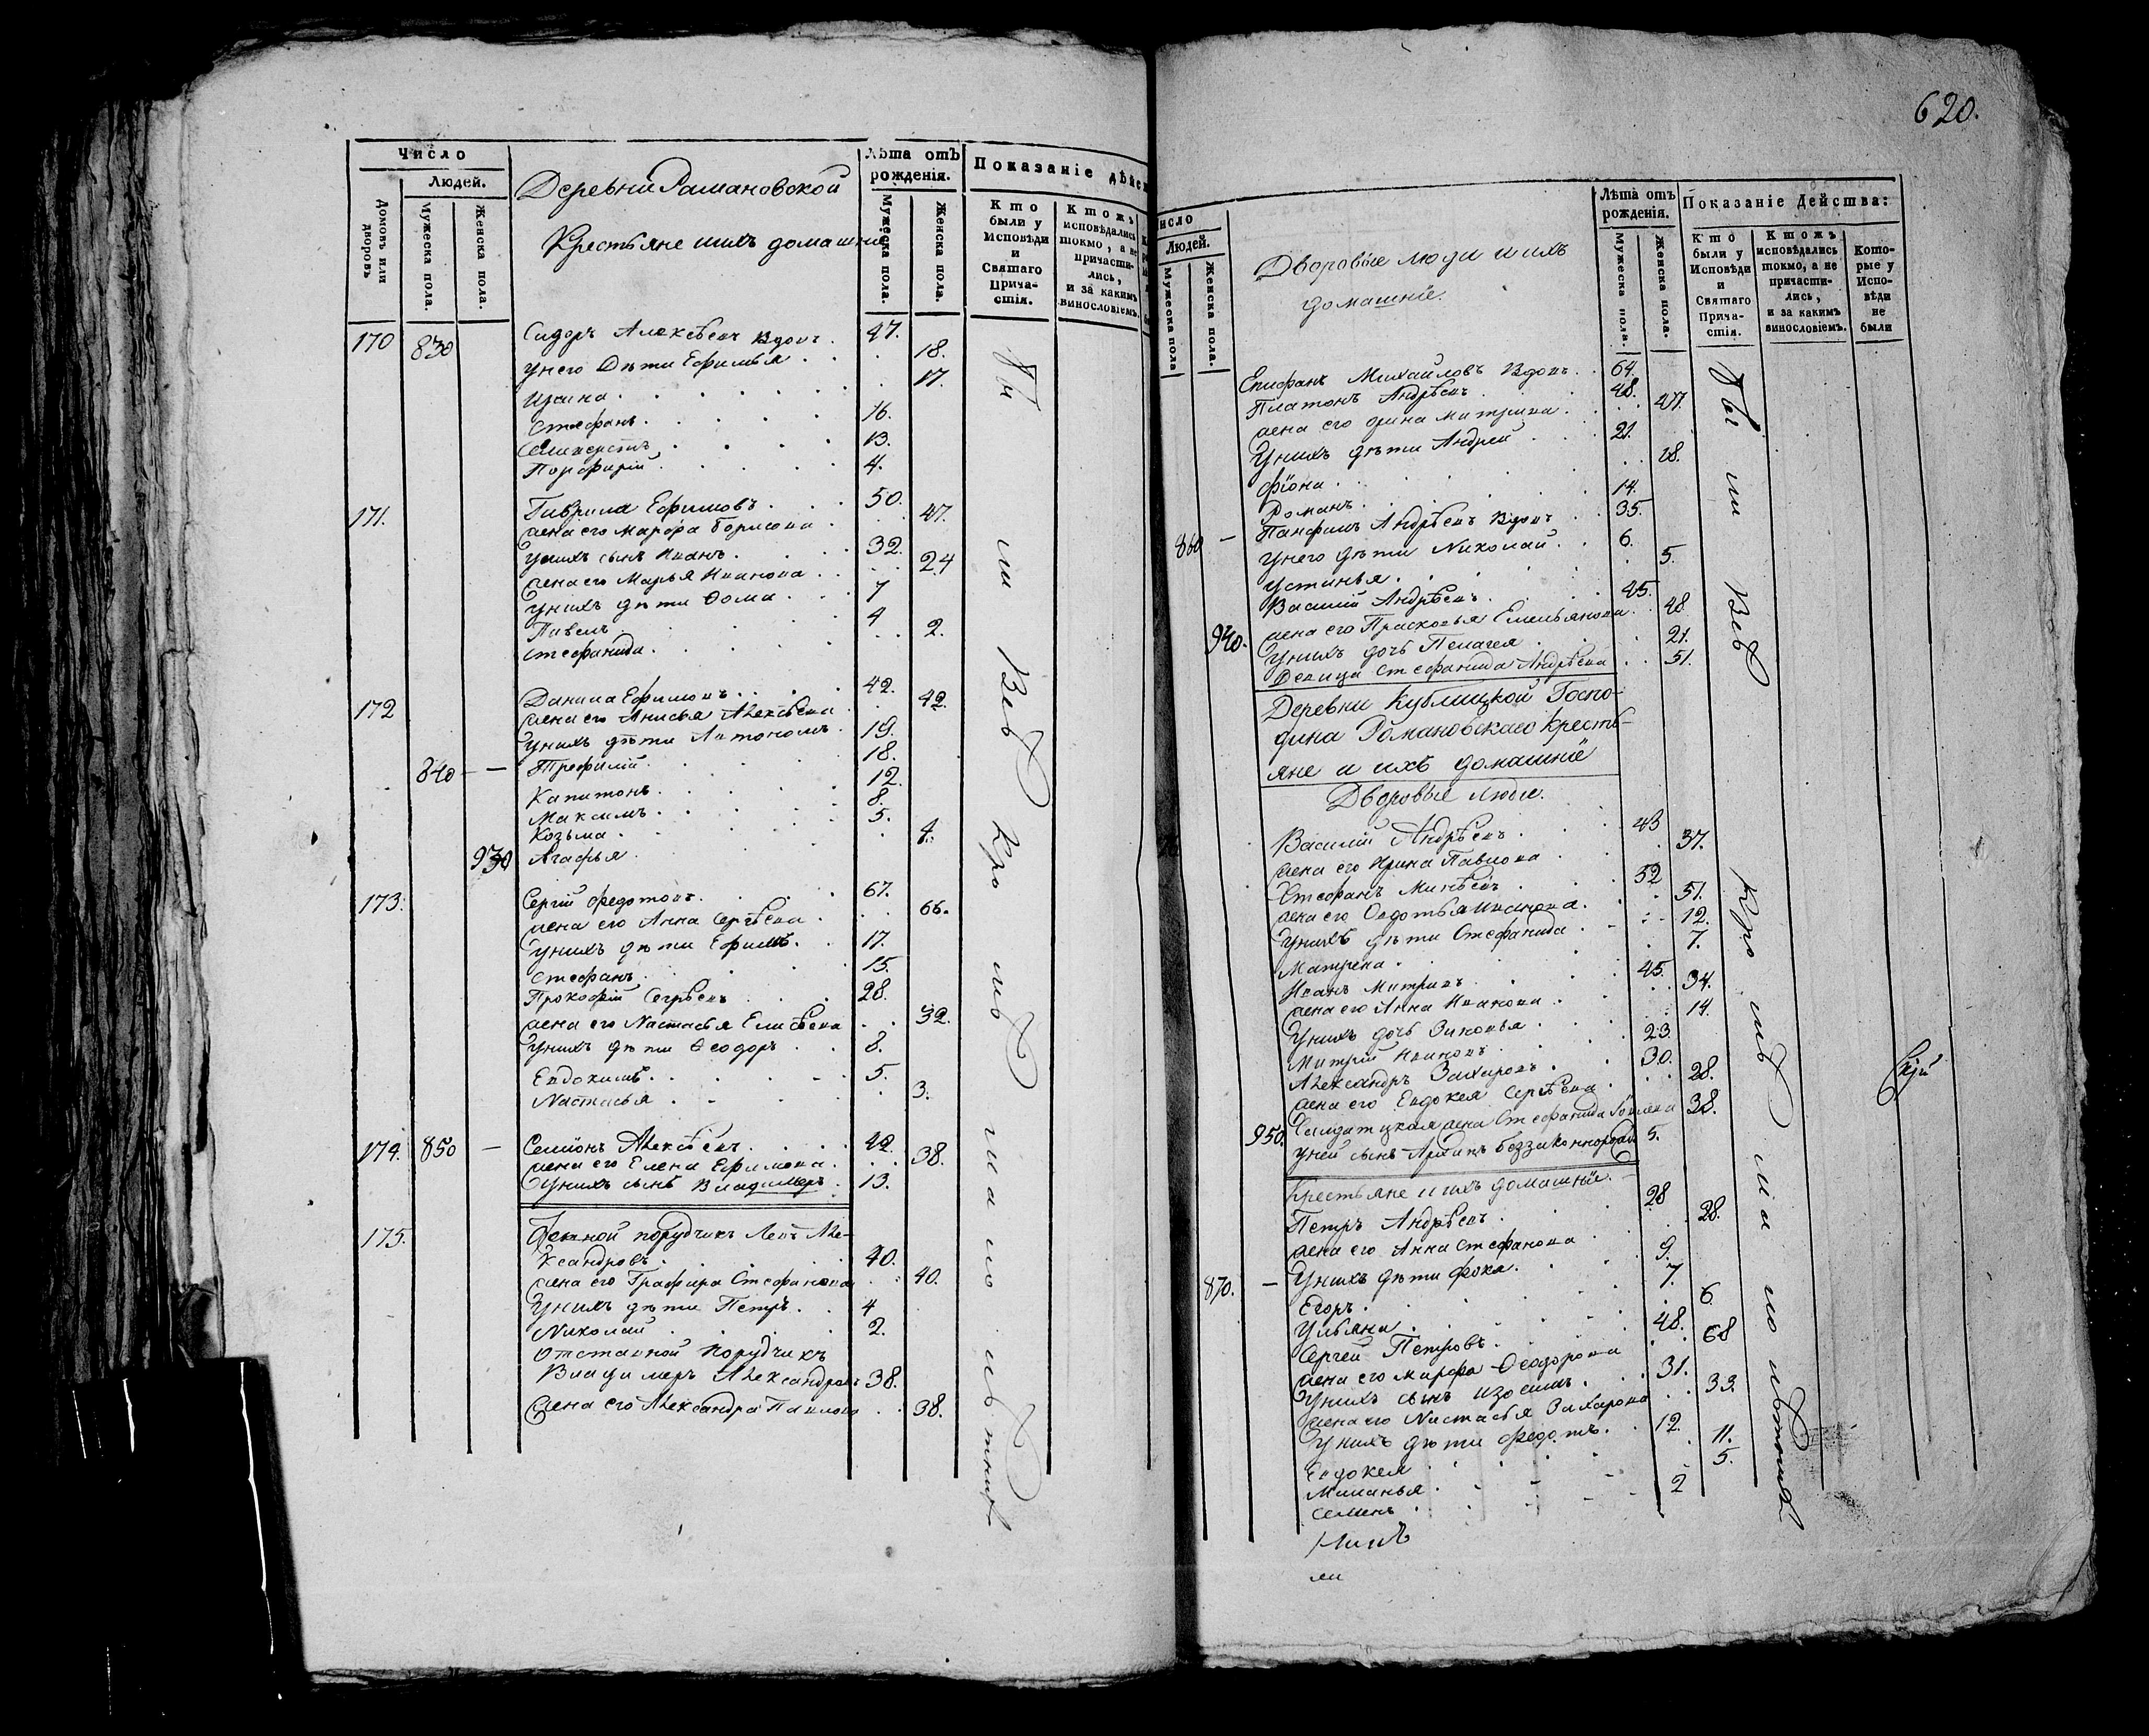 Число
Людей.
Домовъ или дворовъ
Мужеска пола.
Женска пола.
Деревни Романовской
Крестьяне и ихъ домашніе
Лѣта отъ рожденія.
Мужеска пола.
Женска пола.
Показаніе дѣйс
Кто были у Исповѣди и Святаго Прича-стія.
Ктожъ исповѣдались токмо, а не причасти-лись, и за какимъ винословіемъ.
170 830 Сидоръ Алексѣевъ Вдовъ. 47.
У него Дѣти Ефимья 18.
Ирина 17.
Стефанъ 16.
Селиверстъ 13.
Порфирій 4.
171. Гаврила Ефимовъ 50.
жена его Марфа Борисова 47.
У нихъ сынъ Иванъ 32.
жена его Марья Иванова 24
У нихъ дѣти Ѳома 7
Павелъ 4
Стефанида 2.
172 Данила Ефимовъ 42.
жена его Анисья Алексѣева 42.
У нихъ дѣти Автономъ 19.
840 — Трефилій 18.
Капитонъ 12.
Максимъ 8.
Козьма 5.
930 Агафья 4.
173. Сергій Федотовъ 67.
жена его Анна Сергѣева 66.
У нихъ дѣти Ефимъ 17.
Стефанъ 15.
Прокофій Сергѣевъ 28.
жена его Настасья Елисѣева 32.
У нихъ дѣти Ѳеодоръ 8.
Евдокимъ 5.
Настасья 3.
174. 850 — Семіонъ Алексѣевъ 42.
жена его Елена Ефимова 38.
У нихъ сынъ Владимеръ 13.
175. порудчикъ Левъ Але-
ксандровъ 40.
жена его Графира Стефанова 40.
У нихъ дѣти Петръ 4
Николай 2.
Отставной Порудчикъ
Владимеръ Александровъ 38.
жена его Александра Павлова 38.
620.
исло
Людей.
Мужеска пола
Женска пола.
Дворовые люди и ихъ
домашніе.
Лѣта отъ рожденія.
Мужеска пола.
Женска пола.
Показаніе Действа:
Кто были у Исповѣди и Святаго Прича-стія.
Ктожъ исповѣдались токмо, а не причасти-лись, и за какимъ винословіемъ.
Кото-рые у Испо-вѣди не были
Епифанъ Михайловъ Вдовъ 64.
Платонъ Андрѣевъ 48.
жена его Митрива 47.
У нихъ дѣти Андрей 21.
Фіона 18.
Романъ 14.
860 — Панфилъ Андрѣевъ Вдовъ 35.
У него дѣти Николай 6.
Устинья 5.
Василій Андрѣевъ 45.
940. жена его Прасковья Емельянова 48
У нихъ дочь Пелагея 21.
Девица Стефанида Андрѣева 51.
Деревни Кублицкой Госпо-
дина Романовскаго крестъ-
яне и ихъ домашніе
Дворовые люди.
Василій Андрѣевъ 43
жена его Ирина Павлова 37.
Стефанъ Минѣевъ 52
жена его Овдотья Иванова 51.
У нихъ дѣти Стефанида 12.
Матрена 7.
Исакъ Митривъ 45.
жена его Анна Иванова 34.
У нихъ дочь Зиновья 14.
Митрій Ивановъ 23.
Александръ Захаровъ 30.
жена его Евдокея Сергѣева 28.
950. Салдатцкая жена Стефанида 38.
У ней сынъ беззаконнорожд 5.
Крестьяне и ихъ домашніе.
Петръ Андрѣевъ 28
жена его Анна Стефанова 28.
870. — У нихъ дѣти Фока 9.
Егоръ 7.
Ульяна 6.
Сергей Петровъ 48.
жена его Марфа Ѳеодорова 68
У нихъ сынъ Изосимъ 31.
жена его Настасья Захарова 33
У нихъ дѣти Федотъ 12.
Евдокея 11.
Миланья 5.
Семенъ 2